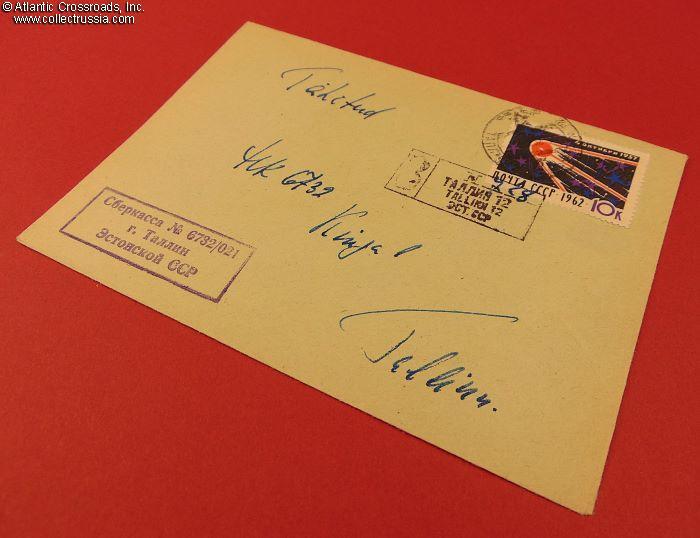 © Atlantic Crossroads, Inc.
www.collectrussia.com
Tähitud
ЧК 6732
Tallinn.
Сберкасса № 6732/021
г. Таллин
Эстонской ССР
№ 228
ТАЛЛИН 12
TALLINN 12
ЭСТ. ССР
4 ОКТЯБРЯ 1957
ПОЧТА СССР 1962
10К